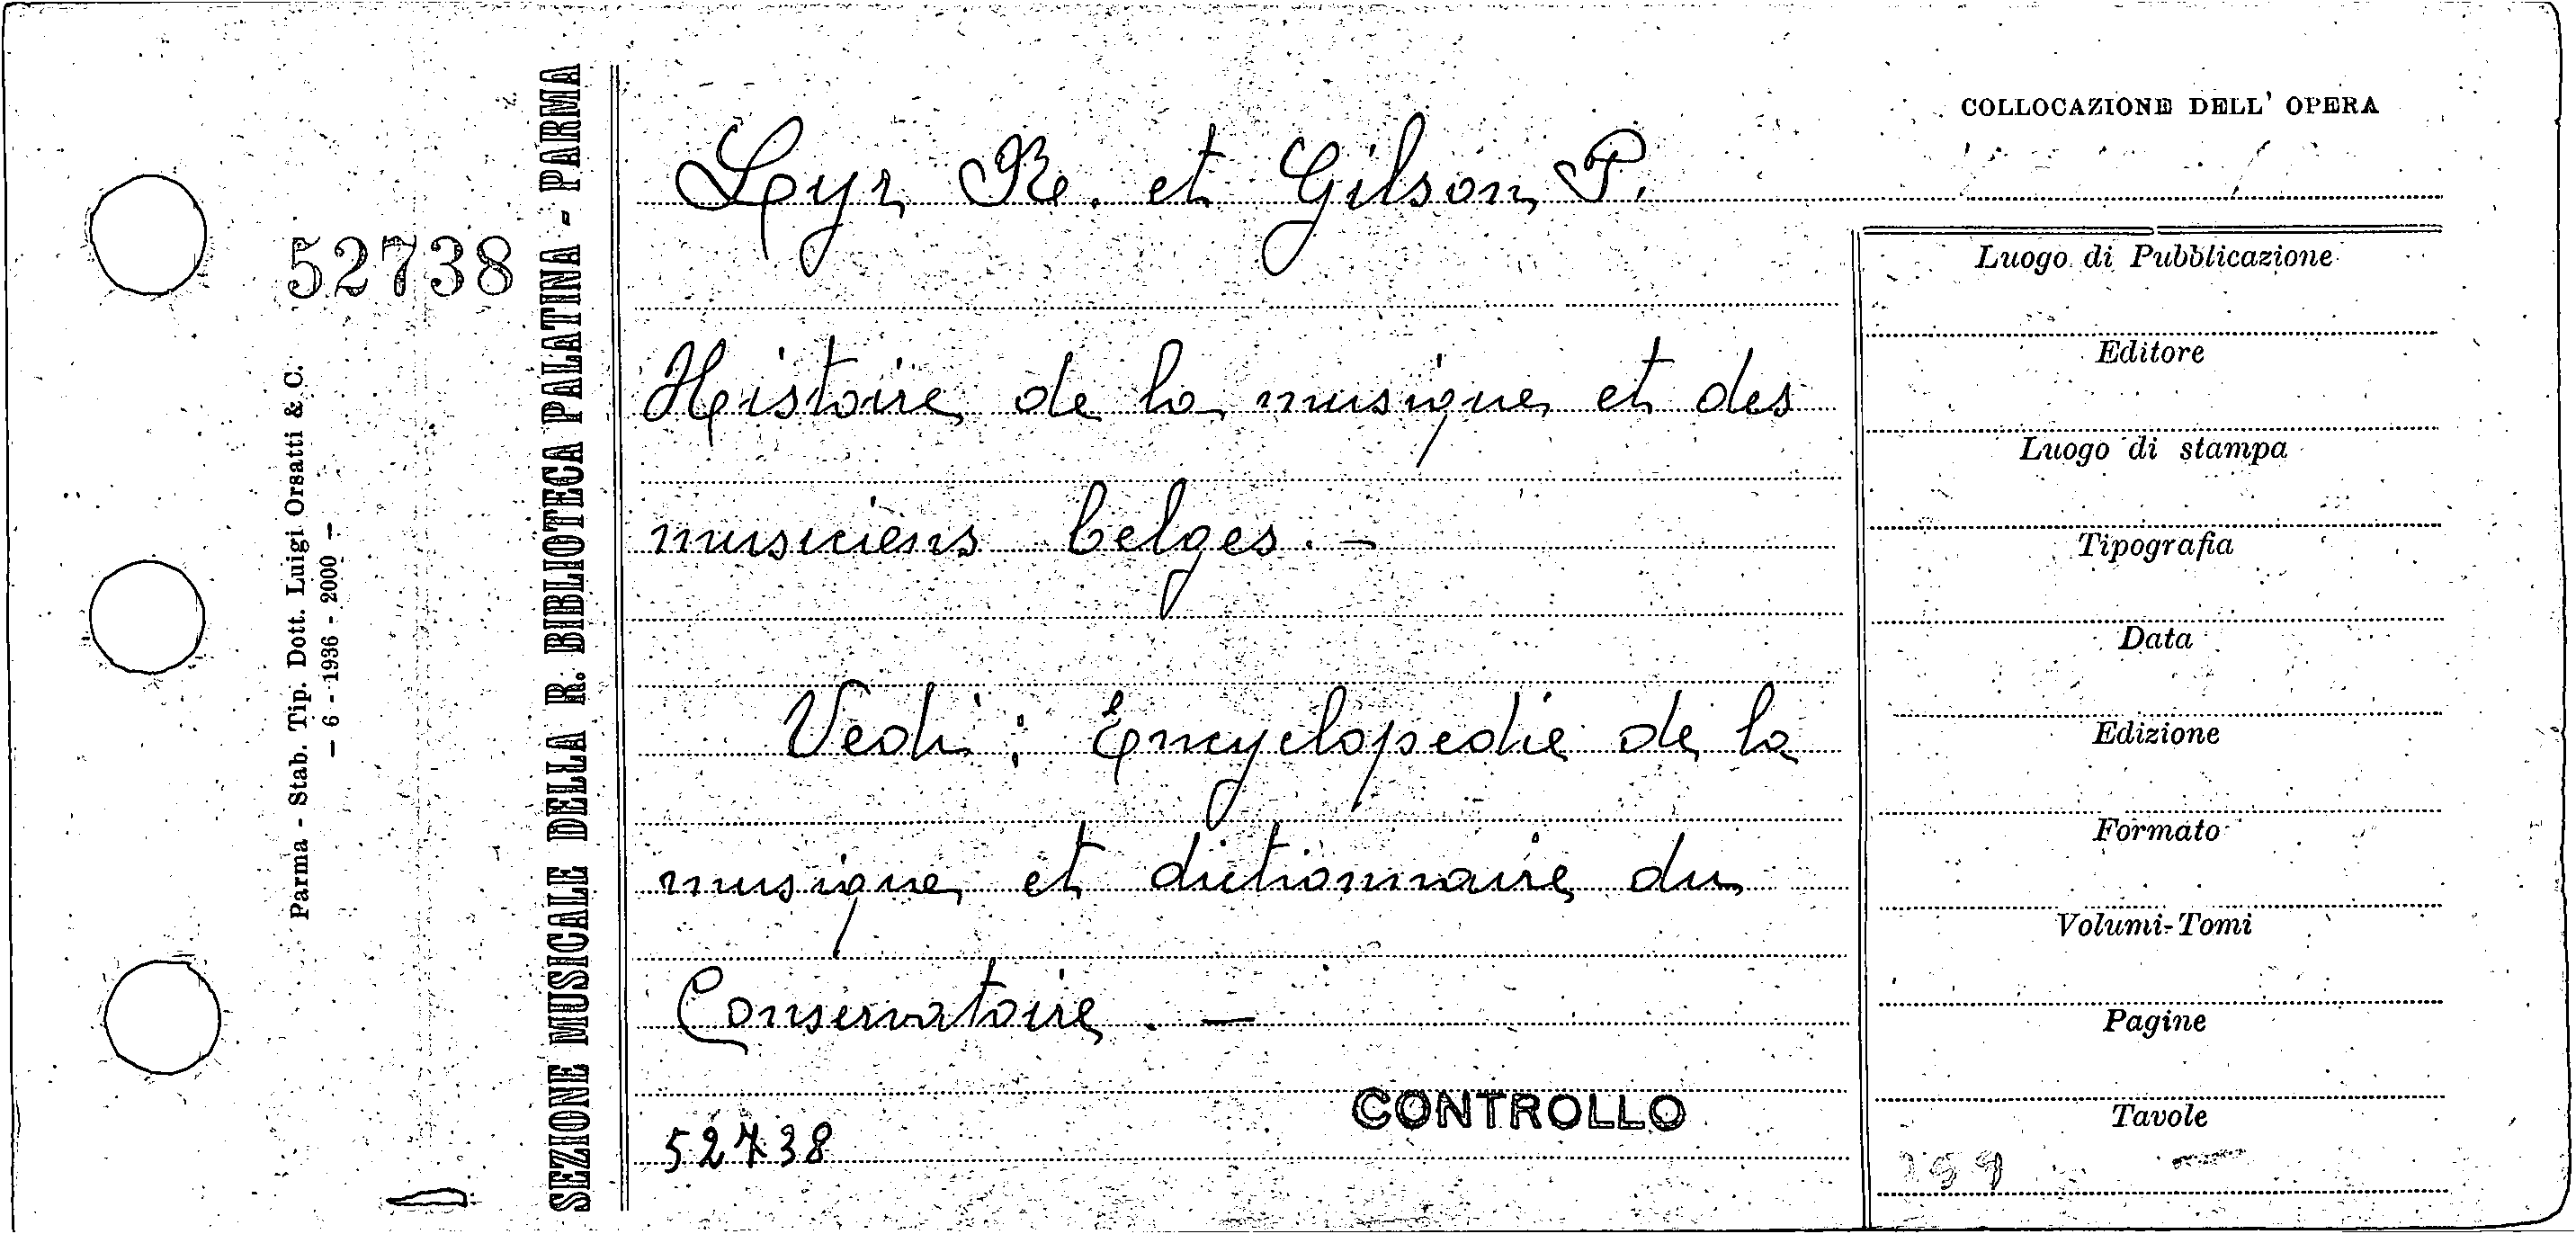 COLLOCAZIONE DELL' OPERA
Lyr Re. et Gilson P.
52738
Histoire de la musique et des
musiciens belges. —
Vedi: Encyclopedie de la
musique et dictionnaire du
Conservatoire. —
CONTROLLO
52738
SEZIONE MUSICALE DELLA R. BIBLIOTECA PALATINA - PARMA
Parma - Stab. Tip. Dott. Luigi Orsatti & C.
— 6 - 1936 - 2000 —
Luogo di Pubblicazione
Editore
Luogo di stampa
Tipografia
Data
Edizione
Formato
Volumi-Tomi
Pagine
Tavole